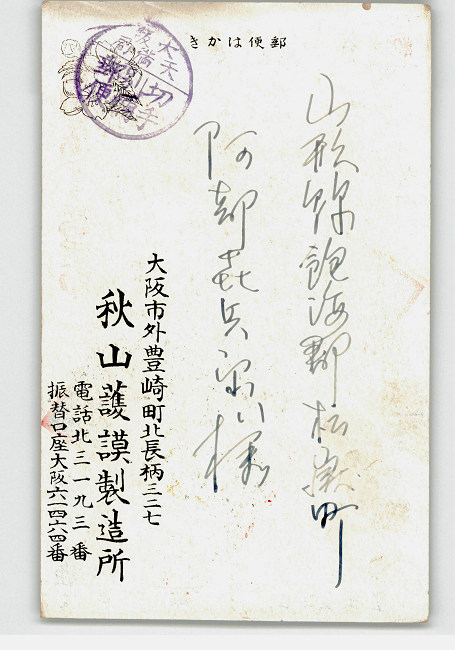 郵便はかき
山形縣飽海郡松嶺町
阿部喜兵衛様
大阪市外豊崎町北長柄三二七
秋山護謨製造所
電話北三一九三番
振替口座大阪六一四六四番